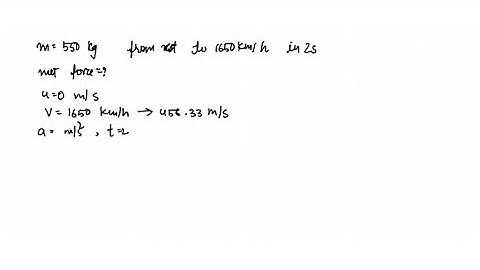 m=550 kg from rest to 1650 km/h in 2s
net force=?
u=0 m/s
V= 1650 km/h → 456.33 m/s
a= m/s², t=2